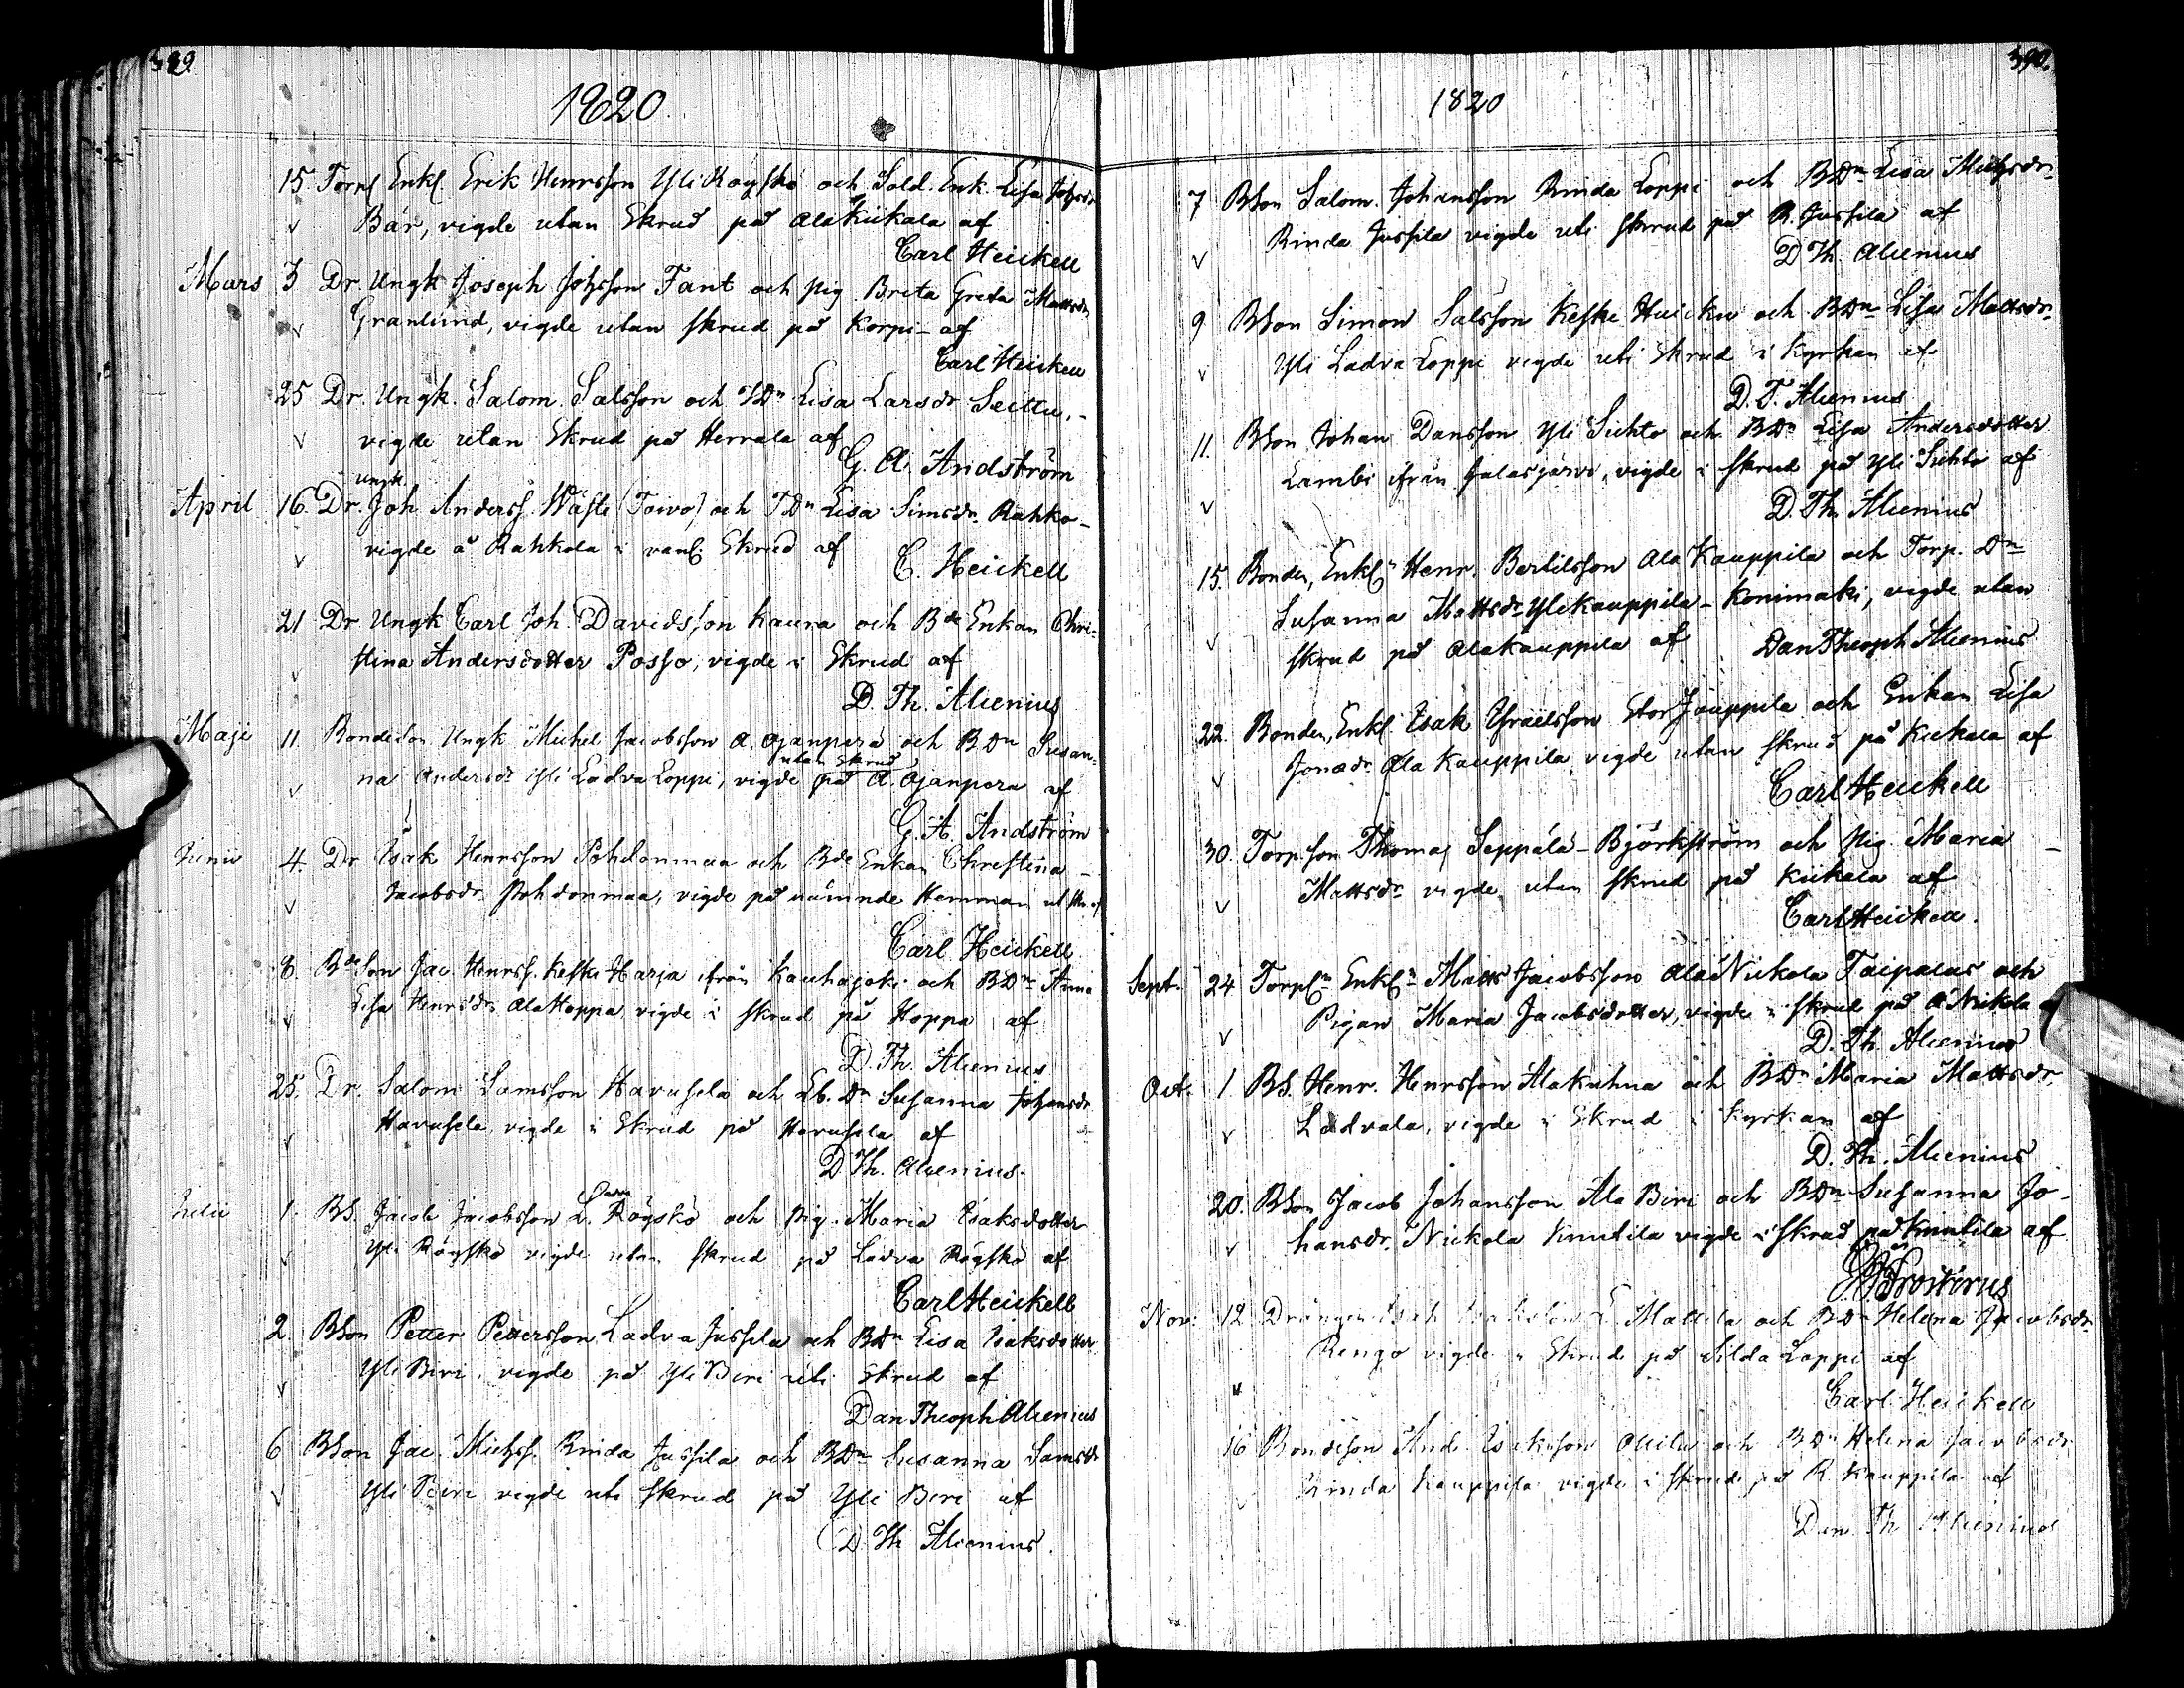 389
1820.
15. Torp Enkl. Erik Henrsson Yli Röyskö och Sold. Enk. Lisa Johsdr
Bär, vigde utan Skrud på Ala Kiikala af
Carl Heickell
Mars 3 Dr. Ungk Joseph Johsson Fant och pig. Breta Greta Mattsdr
Granlund, vigde utan skrud på Korpi - af
Carl Heickell
25 Dr. Ungk. Salom. Salsson och Dn Lisa Larsdr Seittu,
vigde utan Skrud på Herrala af
G. A. Andström
ungk.
April 16. Dr. Joh Anderss. Wäste (Toivo) och TDn Lisa Simsdr. Rahko-
vigde å Rahkola i vanl. Skrud af
C. Heickell
21 Dr Ungk Carl Joh. Davidsson Kaura och Bde Enkan Chri-
stina Andersdotter Posso, vigde i Skrud af
D. Th. Alcenius
Maji 11. Bondeson Ungk Michel Jacobsson A. Ojanperä och BDn Susan-
utan Skrud
na Andersdr Yli Ladva Loppi, vigde på A. Ojanpera af
G. A. Andström
Junii 4. Dr Isak Henrsson Pohdonmaa och Bde Enkan Christina -
Jacobsdr. Pohdonmaa, vigde på nämnde Hemman af
Carl Heickell
8. Bde Son Jac. Henrss. Keski Harja ifrån Kauhajoki och BDn Anna
Lisa Henrsdr. Ala Hoppa vigde i skrud på Hoppa af
D. Th. Alcenius
25. Dr. Salom Samsson Havusela och Lb. Dn Susanna Johansdr
Havusela, vigde i Skrud på Havusela af
D Th. Alcenius.
Julii 1. BS. Jacob Jacobsson L. Röyskö och pig. Maria Isaksdotter
Yli Röyskö vigde utan skrud på Ladva Röyskö af
Carl Heickell
2 BSon Petter Pettersson Ladva Jussila och BDn Lisa Isaksdotter
Yli Biri, vigde på Yli Biri uti Skrud af
Dan Theoph Alcenius
6 BSon Jac. Michss. Rinda Jussila och BDn Susanna Samsdr
Yli Biri vigde uti skrud på Yli Biri af
D Th Alcenius.
390.
1820
7 BSon Salom. Johansson Rinda Loppi och BDn Lisa Michsdr
Rinda Jussila vigde uti skrud på R. Jussila af
D Th. Alcenius
9 BSon Simon Salsson Keski Huicku och BDn Lisa Mattsdr
Yli Ladva Loppi vigde uti Skrud i Kyrkan af
D. T. Alcenius
11. BSon Johan Dansson Yli Suhto och BDn Lisa Andersdotter
Lambi ifrån Jalasjärvi, vigde i skrud på Yli Suhto af
D. Th. Alcenius
15. Bonden, Enkl. Henr. Bertilsson Ala Kauppila och Torp. Dn
Susanna Mattsdr Ylikauppila - Konimaki, vigde utan
skrud på Alakauppila af Dan Theoph Alcenius
22. Bonden, Enkl. Isak Israelsson Stor Jouppila och Enkan Lisa
Jonasdr. Ala Kauppila, vigde utan skrud på Kiikala af
Carl Heickell
30. Torp. son Thomas Seppälä - Björkström och pig. Maria -
Mattsdr vigde utan skrud på Kiikala af
Carl Heickell.
Sept. 24 Torp. Enkl. Matts Jacobsson Ala Nickola Taipalus och
Pigan Maria Jacobsdotter, vigde i skrud på A Nickola af
D. Th. Alcenius
Oct. 1 BS. Henr. Henrsson Alakuhna och BDn Maria Mattsdr
Ladvala, vigde i Skrud i Kyrkan af
D. Th. Alcenius
20. BSon Jacob Johansson Ala Biri och BDn Susanna Jo-
hansdr. Nickola Knutila vigde i skrud på Knutila af
Frosterus
Nov. 12 Drängen Matlila och BDn Helena Jacobsdr
Rengo vigde i Skrud på Loppi af
Carl Heickell
16 Bondeson And. Isaksson Ollila och BDn Helena Jacobsdr
Rinda Kauppila vigde i skrud på R. Kauppila af
Dan Th Alcenius